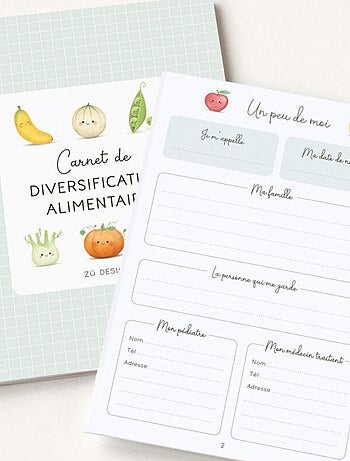 Carnet de
DIVERSIFICATI
ALIMENTAIR
ZÜ DESIG
Un peu de moi
Je m'appelle
Ma date de n
Ma famille
La personne qui me garde
Mon pédiatre
Nom
Tél
Adresse
Mon médecin traitant
Nom
Tél
Adresse
2